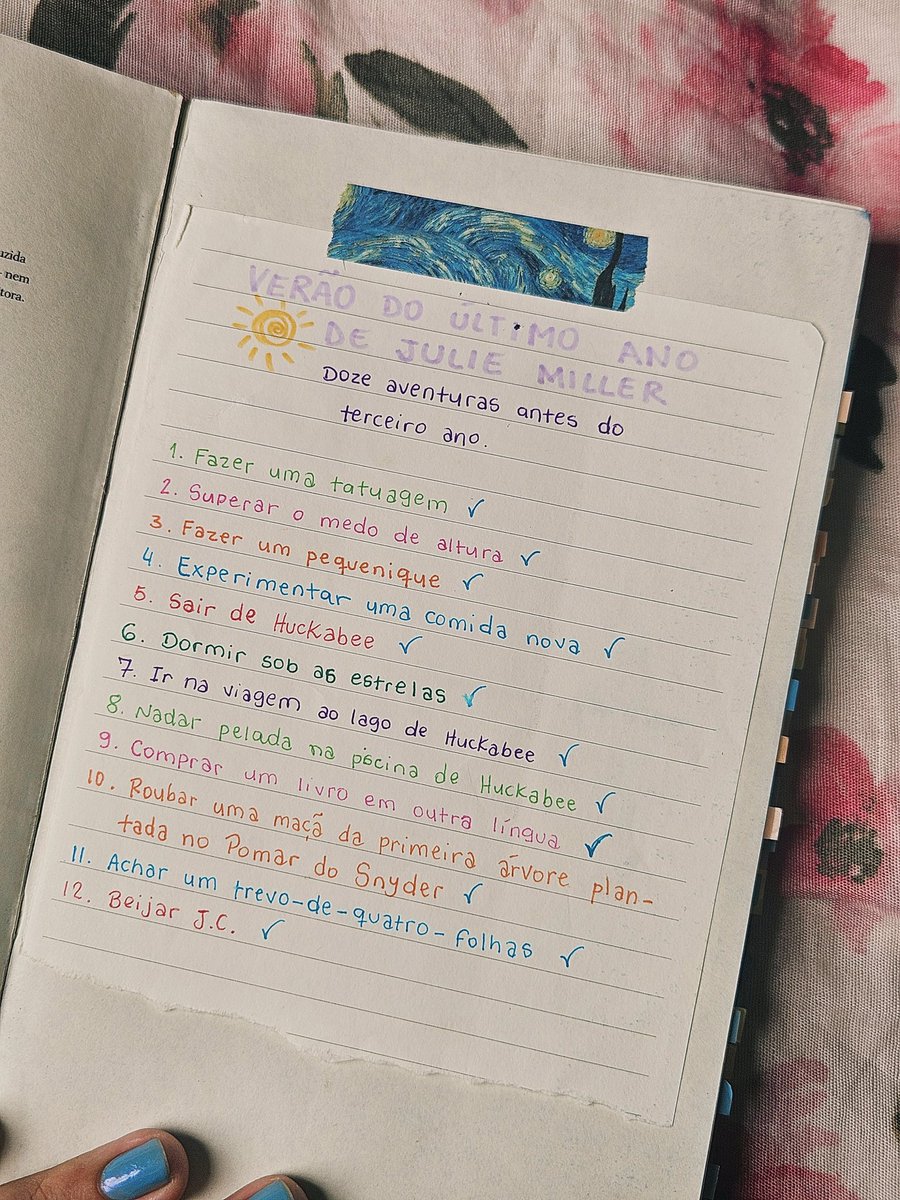 uzida
nem
tora.
VERÃO DO ÚLTIMO ANO
DE JULIE MILLER
Doze aventuras antes do
terceiro ano.
1. Fazer uma tatuagem ✓
2. Superar o medo de altura ✓
3. Fazer um pequenique ✓
4. Experimentar uma comida nova ✓
5. Sair de Huckabee ✓
6. Dormir sob as estrelas ✓
7. Ir na viagem ao lago de Huckabee ✓
8. Nadar pelada na piscina de Huckabee ✓
9. Comprar um livro em outra língua ✓
10. Roubar uma maçã da primeira árvore plan-
tada no Pomar do Snyder ✓
11. Achar um trevo-de-quatro-folhas ✓
12. Beijar J.C. ✓